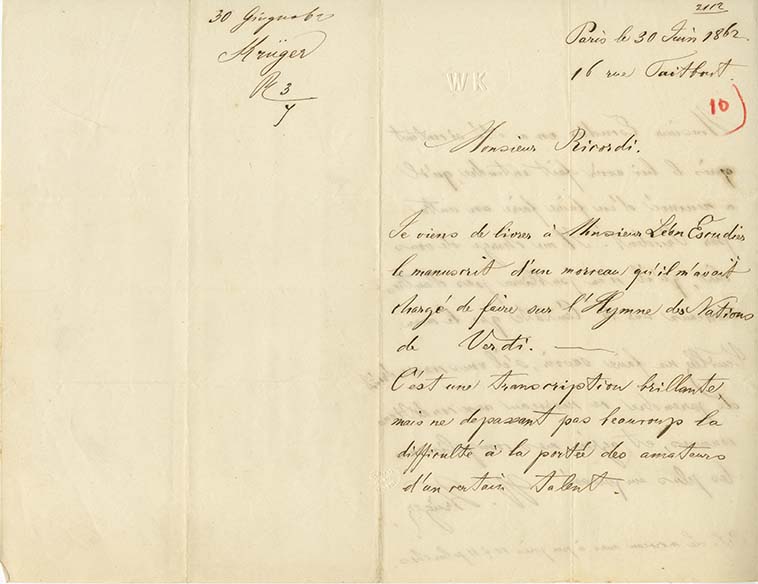 30 Giugno 62
Krüger
R 3
7
2112
Paris le 30 Juin 1862.
16 rue Taitbout.
WK
10
Monsieur Ricordi.
Je viens de livrer à Monsieur Léon Escudier
le manuscrit d'un morceau qu'il m'avait
chargé de faire sur l'Hymne des Nations
de Verdi. —
C'est une transcription brillante,
mais ne depassant pas beaucoup la
difficulté à la portée des amateurs
d'un certain talent.